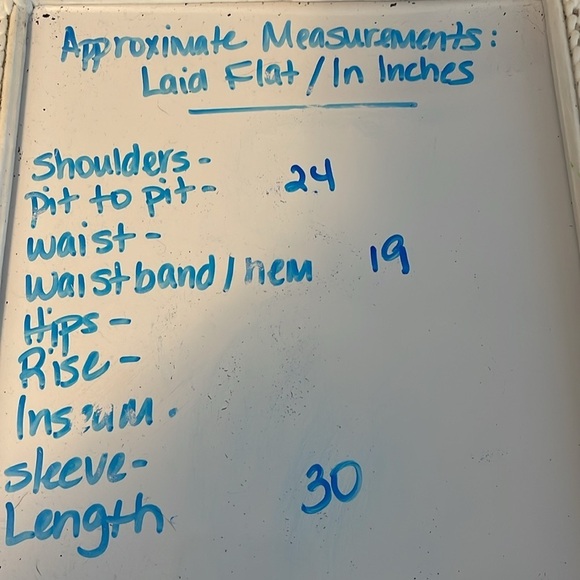 Approximate Measurements:
Laid Flat / In Inches
Shoulders-
pit to pit- 24
waist-
waistband / hem 19
Hips-
Rise-
Inseum.
sleeve-
Length 30